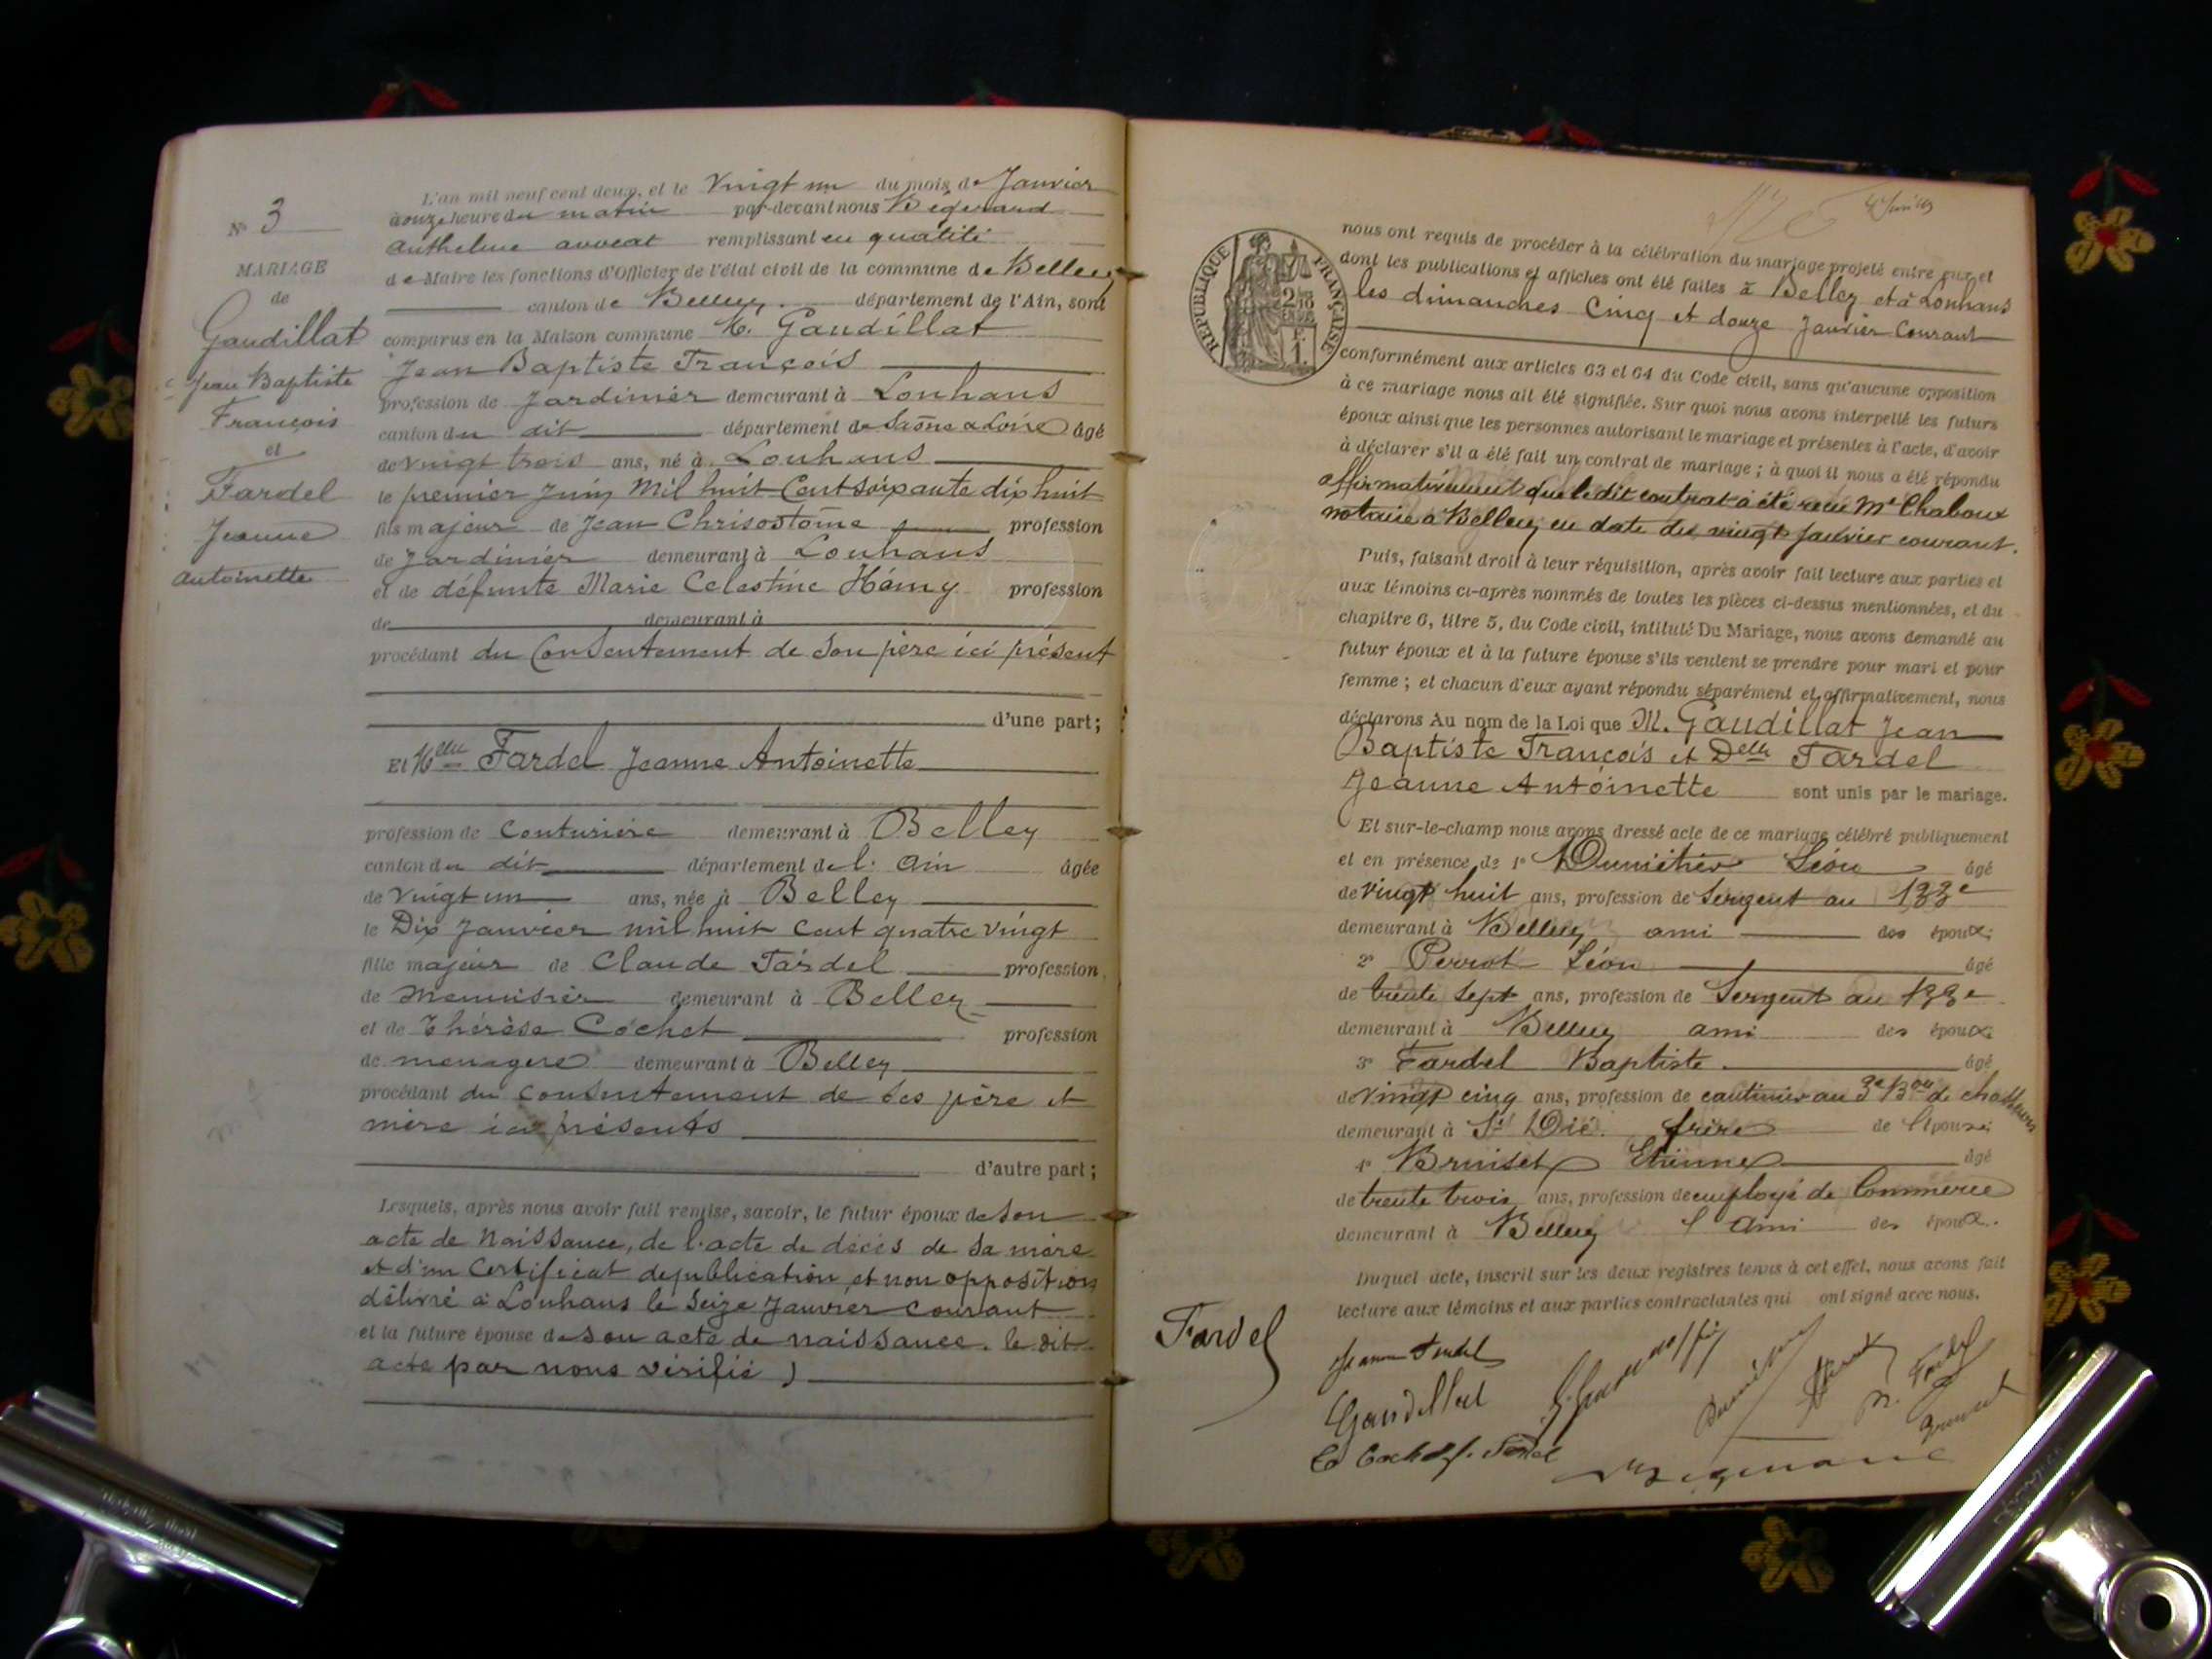 N° 3
MARIAGE
de
Gaudillat
Jean Baptiste
François
et
Fardel
Jeanne
Antoinette
L'an mil neuf cent deux, et le vingt un du mois de Janvier
à onze heure du matin par-devant nous
Anthelme avocat remplissant en qualité
de Maire les fonctions d'Officier de l'état civil de la commune de Belley
canton de Belley département de l'Ain, sont
comparus en la Maison commune M. Gaudillat
Jean Baptiste François
profession de Jardinier demeurant à Louhans
canton du dit département de Saône & Loire âgé
de vingt trois ans, né à Louhans
le premier Juin mil huit Cent soixante dix huit
fils majeur de Jean Chrisostôme profession
de Jardinier demeurant à Louhans
et de défunte Marie Celestine Hémy profession
de demeurant à
procédant du Consentement de son père ici présent
d'une part;
Et Melle Fardel Jeanne Antoinette
profession de Couturière demeurant à Belley
canton du dit département de l'Ain âgée
de vingt un ans, née à Belley
le Dix Janvier mil huit cent quatre vingt
fille majeur de Claude Fardel profession
de menuisier demeurant à Belley
et de Thérèse Cochet profession
de menagere demeurant à Belley
procédant du consentement de ses père et
mère ici présents
d'autre part;
Lesquels, après nous avoir fait remise, savoir, le futur époux de son
acte de Naissance, de l'acte de décès de sa mère
et d'un Certificat de publication et non opposition
délivré à Louhans le seize Janvier courant
et la future épouse de son acte de naissance. le dit
acte par nous vérifié )
RÉPUBLIQUE FRANÇAISE
nous ont requis de procéder à la célébration du mariage projeté entre eux, et
dont les publications et affiches ont été faites à Belley et à Louhans
les dimanches Cinq et douze Janvier Courant
conformément aux articles 63 et 64 du Code civil, sans qu'aucune opposition
à ce mariage nous ait été signifiée. Sur quoi nous avons interpellé les futurs
époux ainsi que les personnes autorisant le mariage et présentes à l'acte, d'avoir
à déclarer s'il a été fait un contrat de mariage ; à quoi il nous a été répondu
affirmativement que le dit contrat à été reçu Me Chaboux
notaire à Belley en date du vingt Janvier courant.
Puis, faisant droit à leur réquisition, après avoir fait lecture aux parties et
aux témoins ci-après nommés de toutes les pièces ci-dessus mentionnées, et du
chapitre 6, titre 5, du Code civil, intitulé Du Mariage, nous avons demandé au
futur époux et à la future épouse s'ils veulent se prendre pour mari et pour
femme ; et chacun d'eux ayant répondu séparément et affirmativement, nous
déclarons Au nom de la Loi que M. Gaudillat Jean
Baptiste François et Delle Fardel
Jeanne Antoinette sont unis par le mariage.
Et sur-le-champ nous avons dressé acte de ce mariage célébré publiquement
et en présence de 1° Léon âgé
de vingt huit ans, profession de Sergent au 133e
demeurant à Belley ami des époux;
2° Perrot Léon âgé
de trente sept ans, profession de Sergent au 133e
demeurant à Belley ami des époux;
3° Fardel Baptiste âgé
de vingt cinq ans, profession de cantinier au 3e Bon de chasseurs
demeurant à St Dié. frère de l'épouse;
4° Bruiset Etienne âgé
de trente trois ans, profession de employé de Commerce
demeurant à Belley ami des époux.
Duquel acte, inscrit sur les deux registres tenus à cet effet, nous avons fait
lecture aux témoins et aux parties contractantes qui ont signé avec nous.
Fardel
Jeanne Fardel
Gaudillat